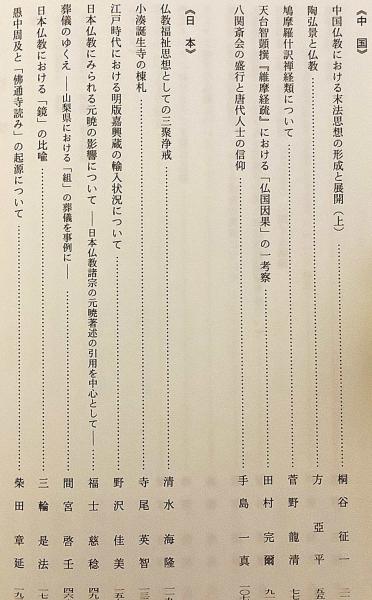 《中国》
中国仏教における末法思想の形成と展開（上）……桐谷征一
陶弘景と仏教……方亞平
鳩摩羅什訳禅経類について……菅野龍清
天台智顗撰『維摩経疏』における「仏国因果」の一考察……田村完爾
八関斎会の盛行と唐代人士の信仰……手島一真
《日本》
仏教福祉思想としての三聚浄戒……清水海隆
小湊誕生寺の棟札……寺尾英智
江戸時代における明版嘉興蔵の輸入状況について……野沢佳美
日本仏教にみられる元暁の影響について――日本仏教諸宗の元暁著述の引用を中心として――……福士慈稔
葬儀のゆくえ――山梨県における「組」の葬儀を事例に――……間宮啓壬
日本仏教における「鏡」の比喩……三輪是法
愚中周及と「佛通寺読み」の起源について……柴田章延